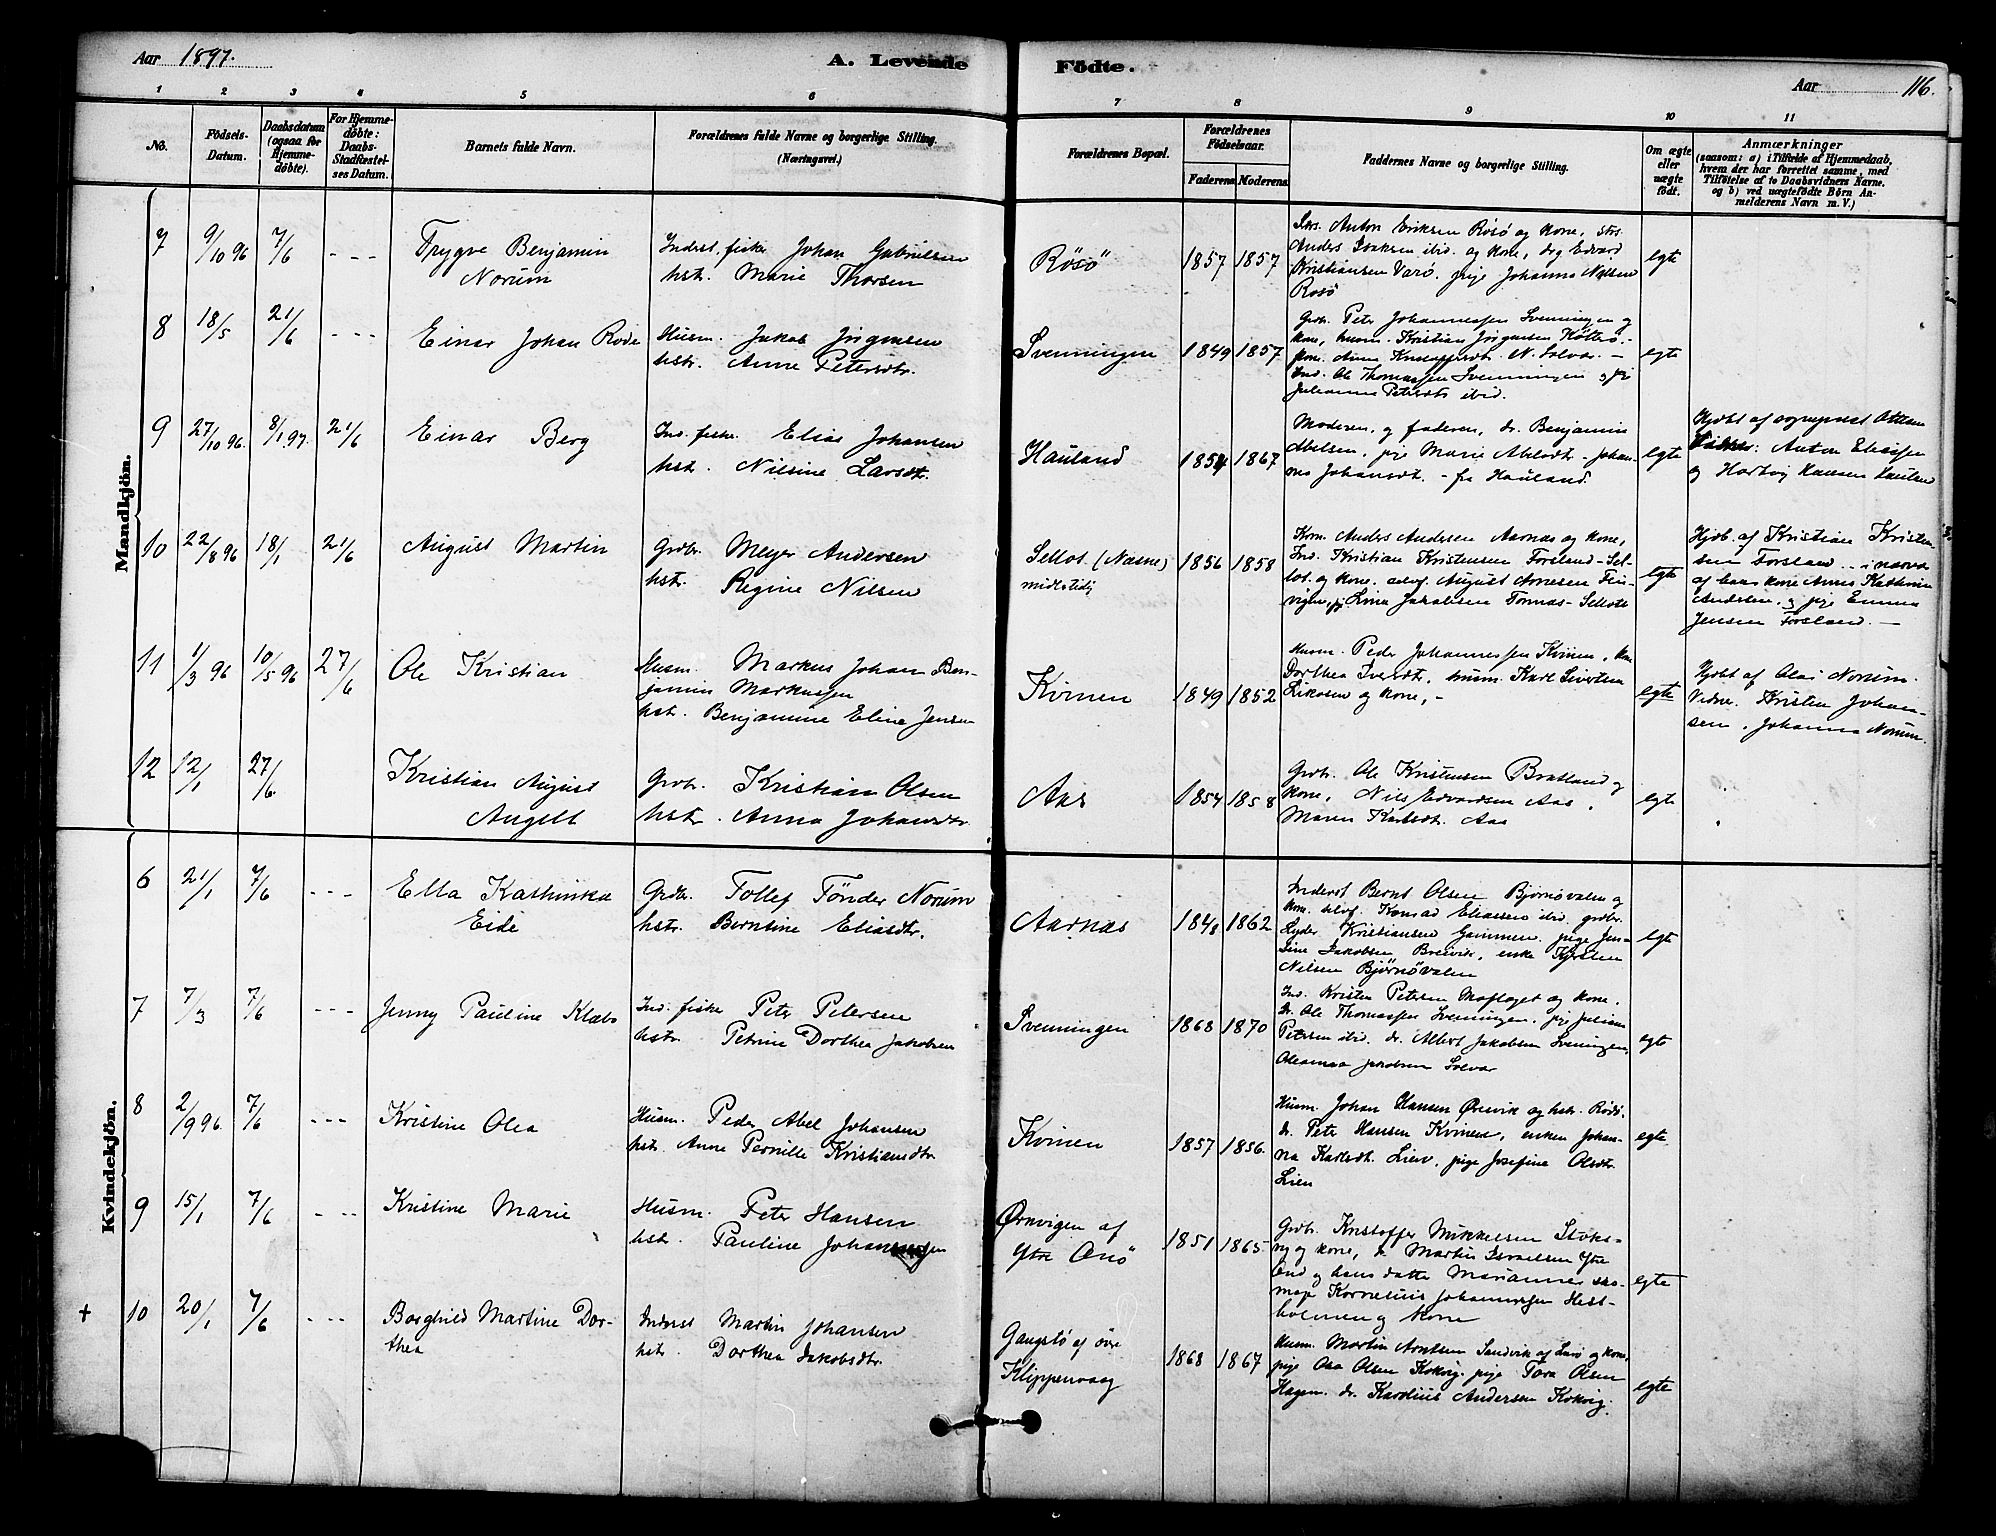 Aar 1897.
A. Levende Födte.
Aar 116.
1 2 3 4 5 6 7 8 9 10 11
No.
Födsels-Datum.
Daabsdatum (ogsaa for Hjemme-døbte).
For Hjemme-døbte: Daabs-Stadfæstel-ses Datum.
Barnets fulde Navn.
Forældrenes fulde Navne og borgerlige Stilling.
(Næringsvei.)
Forældrenes Bopæl.
Forældrenes Fødselsaar.
Faderens. Moderens.
Faddernes Navne og borgerlige Stilling.
Om ægte eller uægte født.
Anmærkninger
(saasom: a) i Tilfælde af Hjemmedaab, hvem der har forrettet samme, med Tilføielse af to Daabsvidners Navne. og b) ved uægtefødte Børn An-melderens Navn m. V.)
Mandkjön.
7 9/10 96 7/6 - - - Trygve Benjamin Norum
Inderst. fisker Johan Gabrielsen
hst. Marie Thorsen
Rösö 1857 1857
Anton Eriksen Rösö og kone,
Anders Isaksen ibid. og kone, drg Edvard
Kristiansen Varö. pige Johanna Nilsen
Rosö
egte
8 18/5 21/6 - - - Einar Johan Rode
Husm. Jakob Jörgensen
hstr. Anne Petersdtr.
Svenningen 1849 1857
Grdb. Peter Johannessen Svenningen og
kone, husm. Kristian Jörgensen
kone. Anne N. Solvær. -
Ind. Ole Thomassen Svenningen og pige
Julianna Petersdtr ibid.
egte
9 27/10 96. 8/1 97. 21/6 Einar Berg
Ind. fisker. Elias Johansen
hst. Nilsine Larsdtr.
Hauland 1854 1867
Moderen, og faderen, dr. Benjamin
Abelsen, pige Marie Abelsdtr - Johan-
na Johansdt. - fra Hauland.
egte
Hjdbt af
Anton Eliassen
og Hartvig Hansen Hauland
10 22/8 96 18/1 21/6 August Martin
Grdbr. Meyer Andersen
hst. Regine Nilsen
Selbot. (Næsne) midlertidig 1856 1858
Kbm. Anders Andersen Aarnæs og kone,
Ind. Kristian Kristensen Forsland - Sel-
bot. og kone. August Arnesen Fin-
vigen, pi. Lina Jakobsen Tornæs - Selbote
egte
Hjdb. af Kristian Kristen-
sen Forsland - i nærvær
af hans kone Anne Kathrine
Andersen. og pige Emma
Jensen Forsland. -
11 1/3 96 10/5 96 27/6 Ole Kristian
Husm. Markus Johan Ben-
jamin Markussen
hst. Benjamine Eline Jensen
Kvinen 1849 1852
Husm. Peder Johannessen Kvinen, kone
Dorthea Iversdt, husm. Karl Sivertsen
Likosen og kone, -
egte
Hjdbt af Olai Norum.
Vidner. Kristen Johan-
sen, Johanna Norum.
12 12/1 27/6. Kristian August Angell
Grdbr. Kristian Olsen
hstr. Anna Johansdtr.
Aas 1854 1858
Grdbr. Ole Kristensen Bratland og
kone, Nils Edvardsen Aas.
Maren Karlsdtr. Aas
egte
Kvindekjön.
6 21/1 7/6 - - - Ella Kathinka Eide
Grdbr. Tollef Tönder Norum
hstr. Berntine Eliasdtr.
Aarnæs 1848 1862
Inderst Bernt Olsen Bjørnøvalen og
kone. Konrad Eliassen ibid, grdbr.
Lyder Kristiansen Gammen. pige Jen-
sine Jakobsen Breivik, enke Kjersten
Nilsen Bjørnøvalen
egte
7 7/3 7/6 - - - Jenny Pauline Klæbo
Ind. fisker Peter Petersen
hstr Petrine Dorthea Jakobsen
Svenningen 1868 1870
Ind. Kristen Petersen Moflaget og kone.
Dr. Ole Thomassen Svenningen, pige Juliane
Petersen ibid. dr. Albert Jakobsen Svenningen,
Jakobsen Solvær
egte
8 2/9 96. 7/6 - - - Kristine Olea
Husm. Peder Abel Johansen
hstr. Anne Pernille Kristiansdtr
Kvinen 1857 1856.
Husm. Johan Hansen Ørnvik og hstr. Rödö.
dr. Peter Hansen Kvinen, enken Johan-
na Karlsdt. Lien, pige Josefine Olsdtr.
Lien
egte
9 15/1 7/6 - - - Kristine Marie
Husm. Peter Hansen
hstr. Pauline Johannessen
Ørnvigen af
Ytre Onö 1851 1865
Grdbr. Kristoffer Mikkelsen Stoks-
og kone, dr. Martin Israelsen Ytre
Onö og hans datter Marianne, sko-
mager Kornelius Johannesen Hest-
holmen og kone
egte
† 10 20/1 7/6 - - - Borghild Martine Dor-
thea
Inderst Martin Johansen
hstr. Dorthea Jakobsdtr.
Gangstö af övre
Klippenvaag 1868 1867
Husm. Martin Arntsen Sandvik af Lurö og kone,
pige Osa Olsen Kokvig. pige Tora Olsen
Hagen. dr. Karolius Andersen Kokvig.
egte